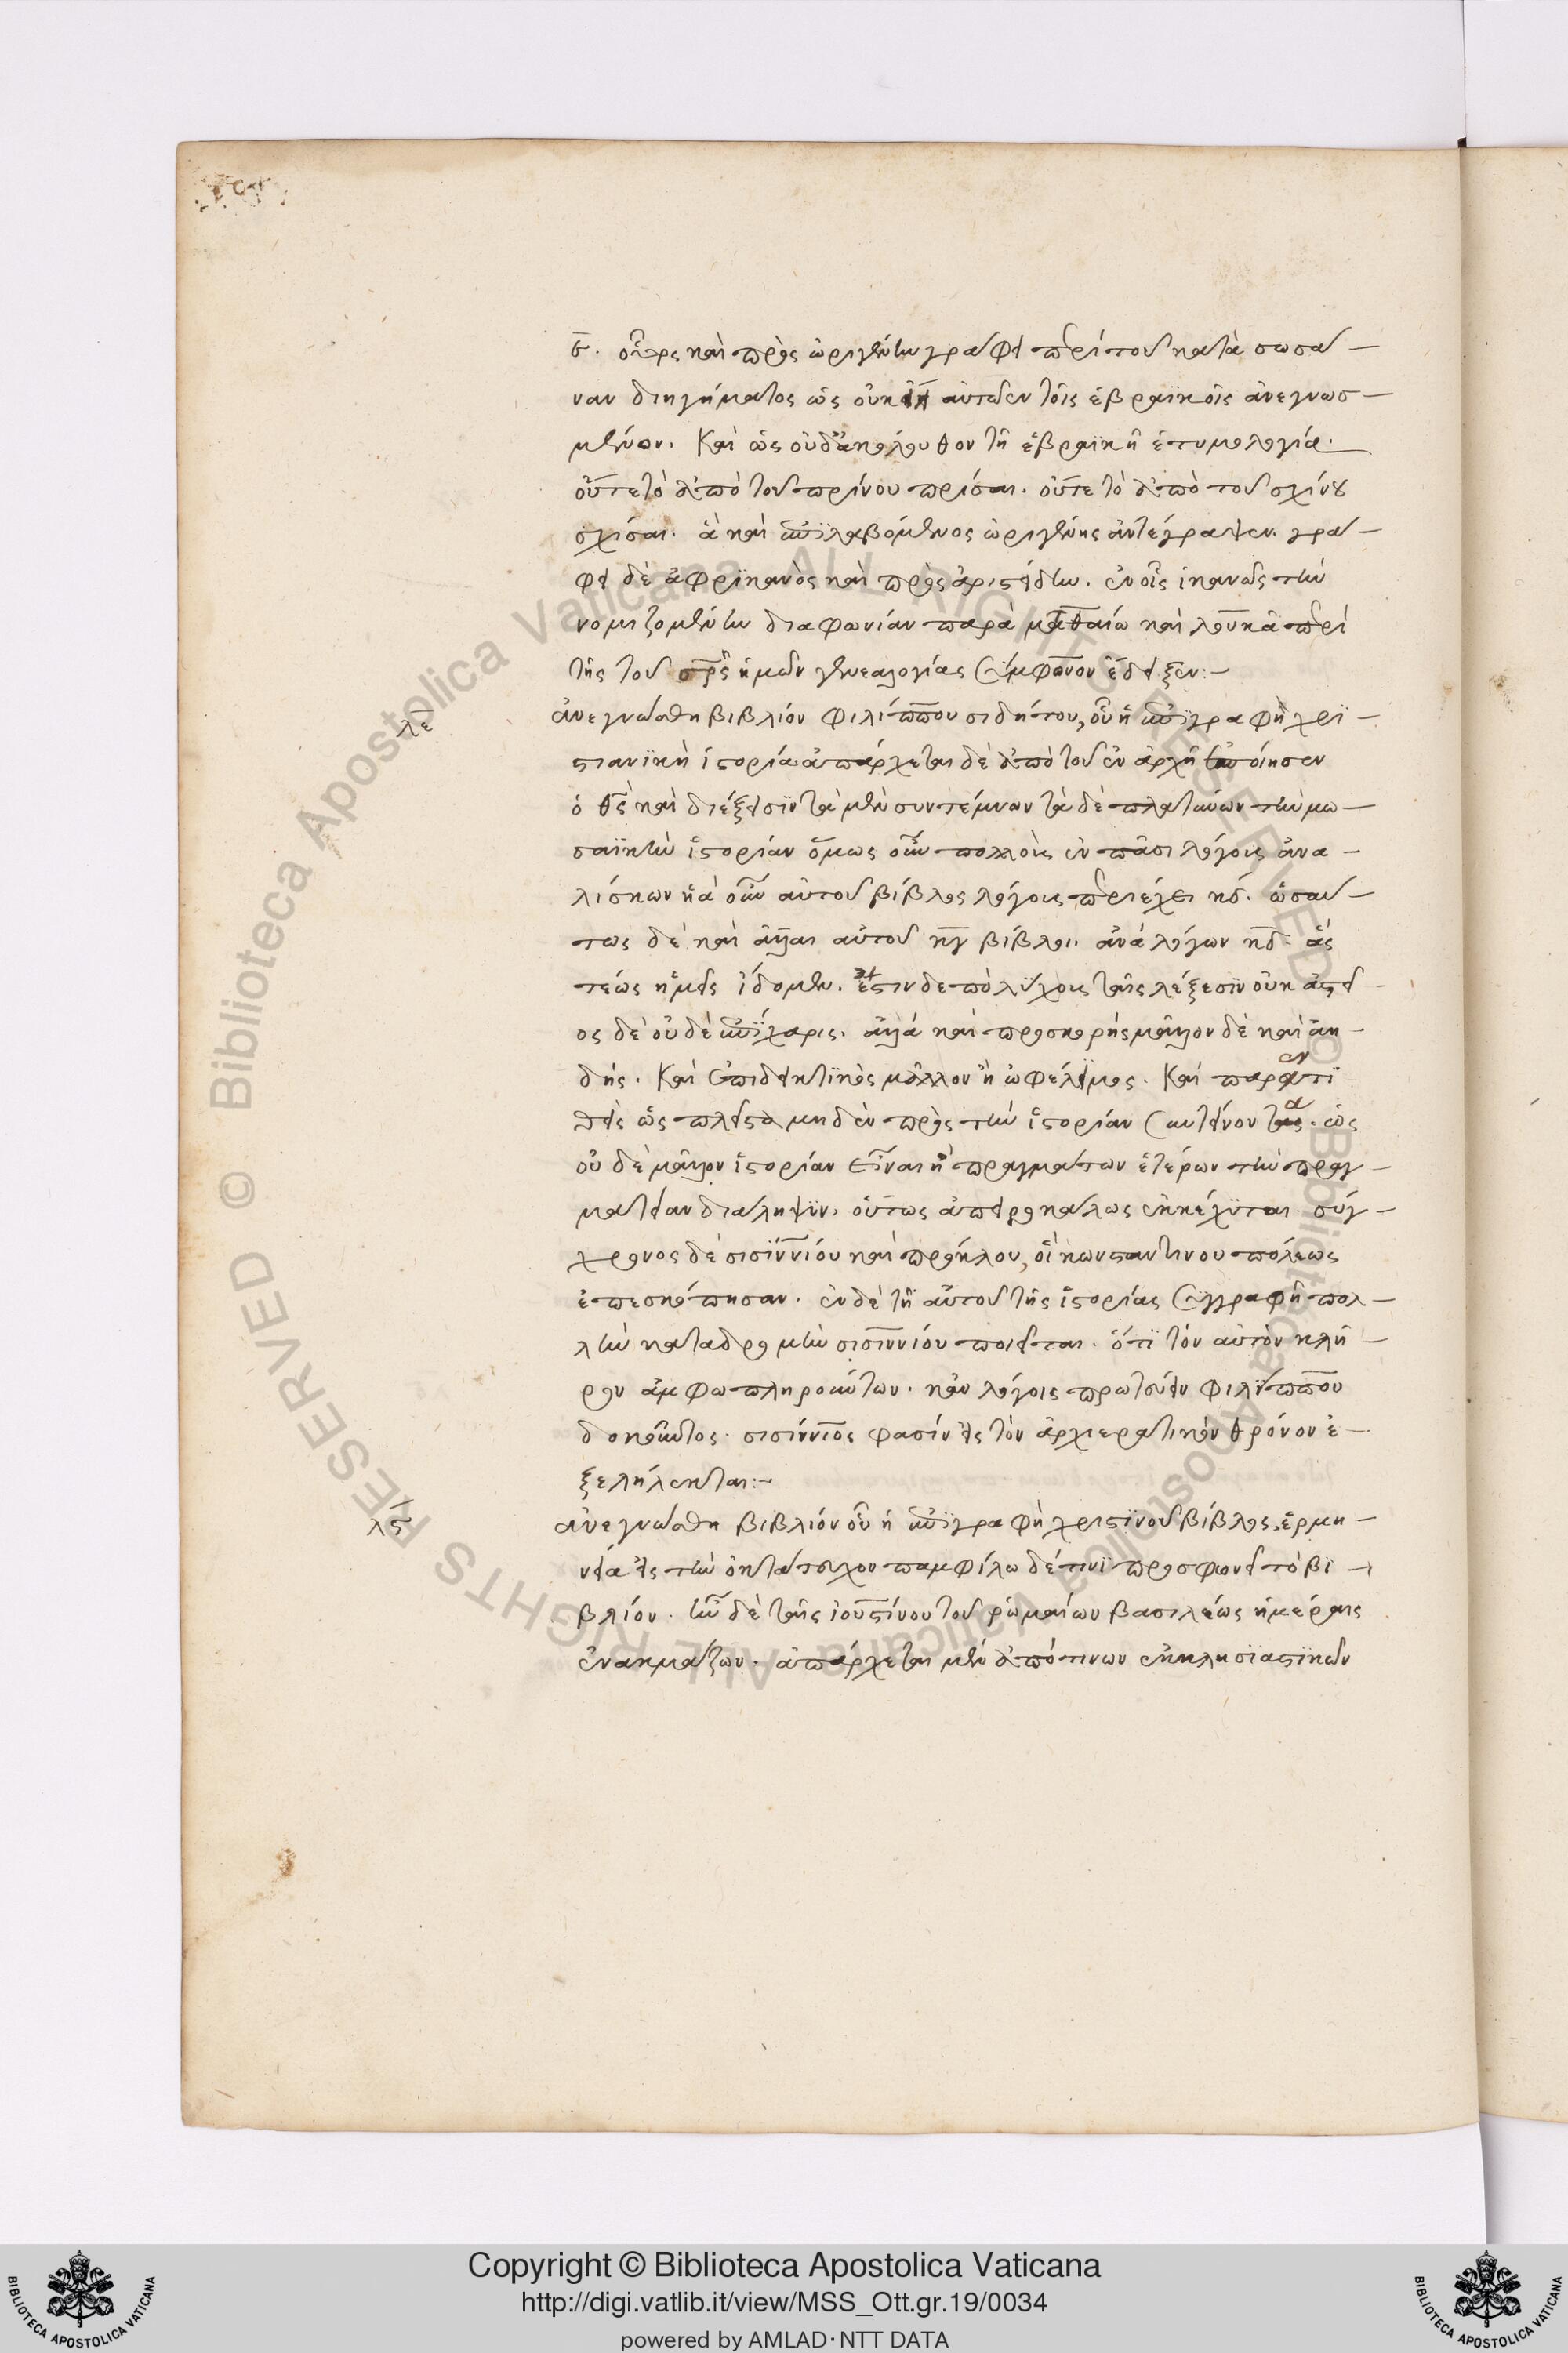 ϛ. οὗτος καὶ πρὸς ὠριγένην γράφει περὶ τοῦ κατὰ σωσάν
ναν διηγήματος ὡς οὐκ αὐτῶ ἐν τοῖς ἑβραϊκοῖς ἀνεγνωσ
μένον. καὶ ὡς οὐδ' ἀκόλουθον τῆ ἑβραϊκῆ ἐτυμολογία.
οὔτε τὸ ἀπὸ τοῦ πρίνου πρίσαι. οὔτε τὸ ἀπὸ τοῦ σχίνου
σχίσαι. ἃ καὶ ἐπϊλαβόμενος ὠριγένης ἀντέγραψεν. γρά
φει δὲ ἀφρϊκανὸς καὶ πρὸς ἀριστείδην. ἐν οἷς ἱκανῶς τὴν
νομιζομένην διαφωνίαν παρὰ ματθαίω καὶ λουκᾶ περὶ
τῆς τοῦ σρς ἡμῶν γενεαλογίας σύμφωνον ἔδειξεν:
λε ἀνεγνώσθη βιβλίον φιλίππου σιδήτου, οὗ ἡ ἐπϊγραφὴ χρϊ
στιανϊκὴ ἱστορία ἀπάρχεται δὲ ἀπὸ τοῦ ἐν ἀρχῆ ἐποίησεν
ὁ θς καὶ διέξεισϊν τὰ μὲν συντέμναν τὰ δὲ πλατύνων τὴν μω
σαϊκὴν ἱστορίαν ὅμως οὖν πολλοῖς ἐν πᾶσι λόγοις ἀνα
λίσκων ἡ α οὖν αὐτοῦ βίβλος λόγοις περιέχει κδ. ὡσαύ
τως δὲ καὶ ἄλλαι αὐτοῦ κγ βίβλοι. ἀνὰ λόγων κδ. ἃς
τέως ἡμεῖς ἴδομεν. ἔστιν δε πολύχοις ταῖς λέξεσϊν οὐκ ἀστεῖ
ος δὲ οὐδὲ ἐπϊχαρις. ἀλλὰ καὶ προσκορὴς μᾶλλον δὲ καὶ ἀη
δής. καὶ ἐπιδεικτϊκὸς μᾶλλον ἢ ὠφέλϊμος. καὶ παρεντϊ
θεὶς ὡς πλεῖστα μηδὲν πρὸς τὴν ἱστορίαν συντείνοντα. ὡς
οὐδὲ μᾶλλον ἱστορίαν εἶναι ἢ πραγμάτων ἑτέρων τὴν πραγ
ματείαν διάληψϊν. οὕτως ἀπειροκάλως ἐκκέχϋται. σύγ
χρονος δὲ σισϊννίου καὶ πρόκλου, οἳ κωνσταντινουπόλεως
ἐπεσκόπησαν. ἐν δὲ τῆ αὐτοῦ τῆς ἱστορίας συγγραφῆ πολ
λὴν καταδρομὴν σισϊννίου ποιεῖται. ὅτϊ τὸν αὐτὸν κλῆ
ρον ἄμφω πληρούντων. κἀν λόγοις πρωτεύειν φιλίππου
δοκοῦντος. σισίννϊος φασὶν εἰς τὸν ἀρχιερατικὸν θρόνον ἐ
ξελήλεκται:
λϛ ἀνεγνώσθη βιβλίον οὗ ἡ ἐπϊγραφὴ χριστϊνοῦ βίβλος. ἑρμη
νεία εἰς τὴν ὀκτάτευχον παμφίλω δέ τινϊ προσφωνεῖ τὸ βϊ
βλίον. ἐν δὲ ταῖς ἰουστίνου τοῦ ῥωμαίων βασιλέως ἡμέραις
ἐνακμάζων. ἀπάρχεται μὲν ἀπό τινων ἐκκλησϊαστϊκῶν
Copyright © Biblioteca Apostolica Vaticana
http://digi.vatlib.it/view/MSS_Ott.gr.19/0034
powered by AMLAD·NTT DATA
BIBLIOTECA APOSTOLICA VATICANA
BIBLIOTECA APOSTOLICA VATICANA
© Biblioteca Apostolica Vaticana ALL RIGHTS RESERVED © Biblioteca Apostolica Vaticana ALL RIGHTS RESERVED